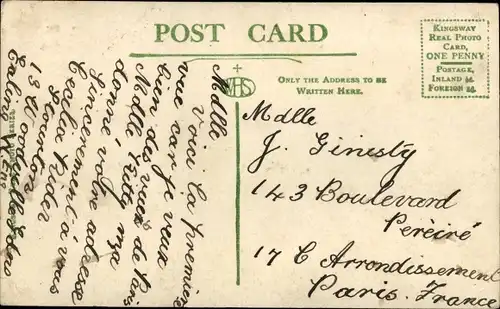 POST CARD
KINGSWAY
REAL PHOTO
CARD,
ONE PENNY
POSTAGE,
INLAND ½d.
FOREIGN 1d.
WHS
ONLY THE ADDRESS TO BE
WRITTEN HERE.
Mdlle
Voici la première
vue car je veux
bien des vues de Paris
Mdlle Kitty m'a
donné votre adresse
Sincerement à vous
Cecilia Rider
13 Woodville
Ealing
Mdlle
J. Ginesty
143 Boulevard
Péreiré
17 C Arrondissement
Paris. France